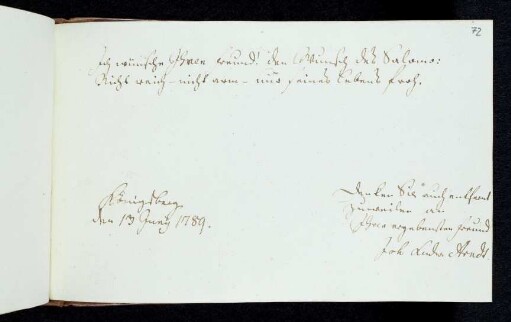 72
Ich wünsche Ihnen Freund! den Wunsch des Salomo:
Nicht reich – nicht arm – nur seines Lebens froh.
Königsberg
den 13 Juny 1789.
Denken Sie auch entfernt
zuweilen an
Ihren ergebensten Freund
Joh Ludw Arndt